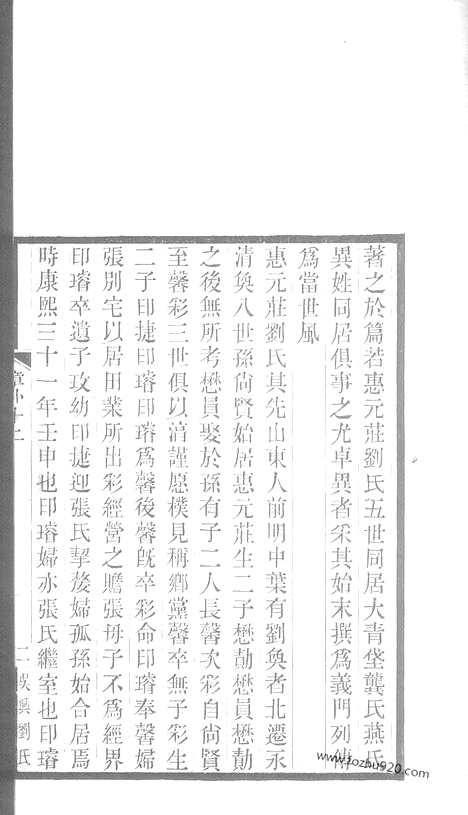 著之於篇若惠元莊劉氏五世同居大青垡龔氏燕氏
異姓同居俱事之尤卓異者采其始末撰爲義門列傳
爲當世風
惠元莊劉氏其先山東人前明中葉有劉奐者北遷永
清奐八世孫尙賢始居惠元莊生二子懋勣懋員懋勣
之後無所考懋員娶於孫有子二人長馨次彩自尙賢
至馨彩三世俱以淸謹愿樸見稱鄉黨馨卒無子彩生
二子印捷印璿印璿爲馨後馨旣卒彩命印璿奉馨婦
張別宅以居田業所出彩經營之贍張毋子不爲經界
印璿卒遺子玫幼印捷迎張氏挈嫠婦孤孫始合居焉
時康熙三十一年壬申也印璿婦亦張氏繼室也印璿
章
二 吳興劉氏
www.fozhu920.com